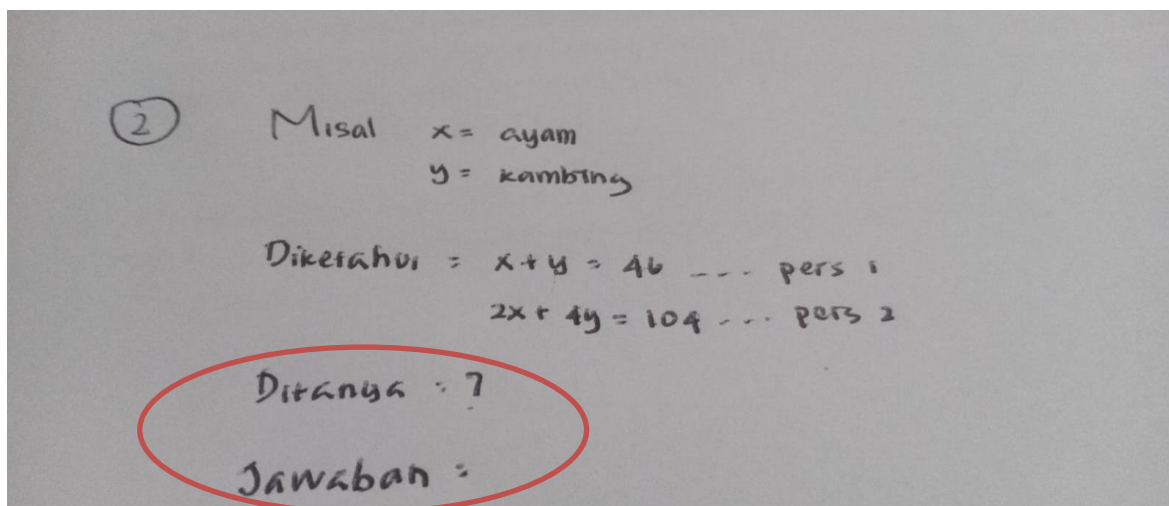 2 Misal x = ayam
y = kambing
Diketahui = x + y = 46 .... pers 1
2x + 4y = 104 ... pers 2
Ditanya : ?
Jawaban :